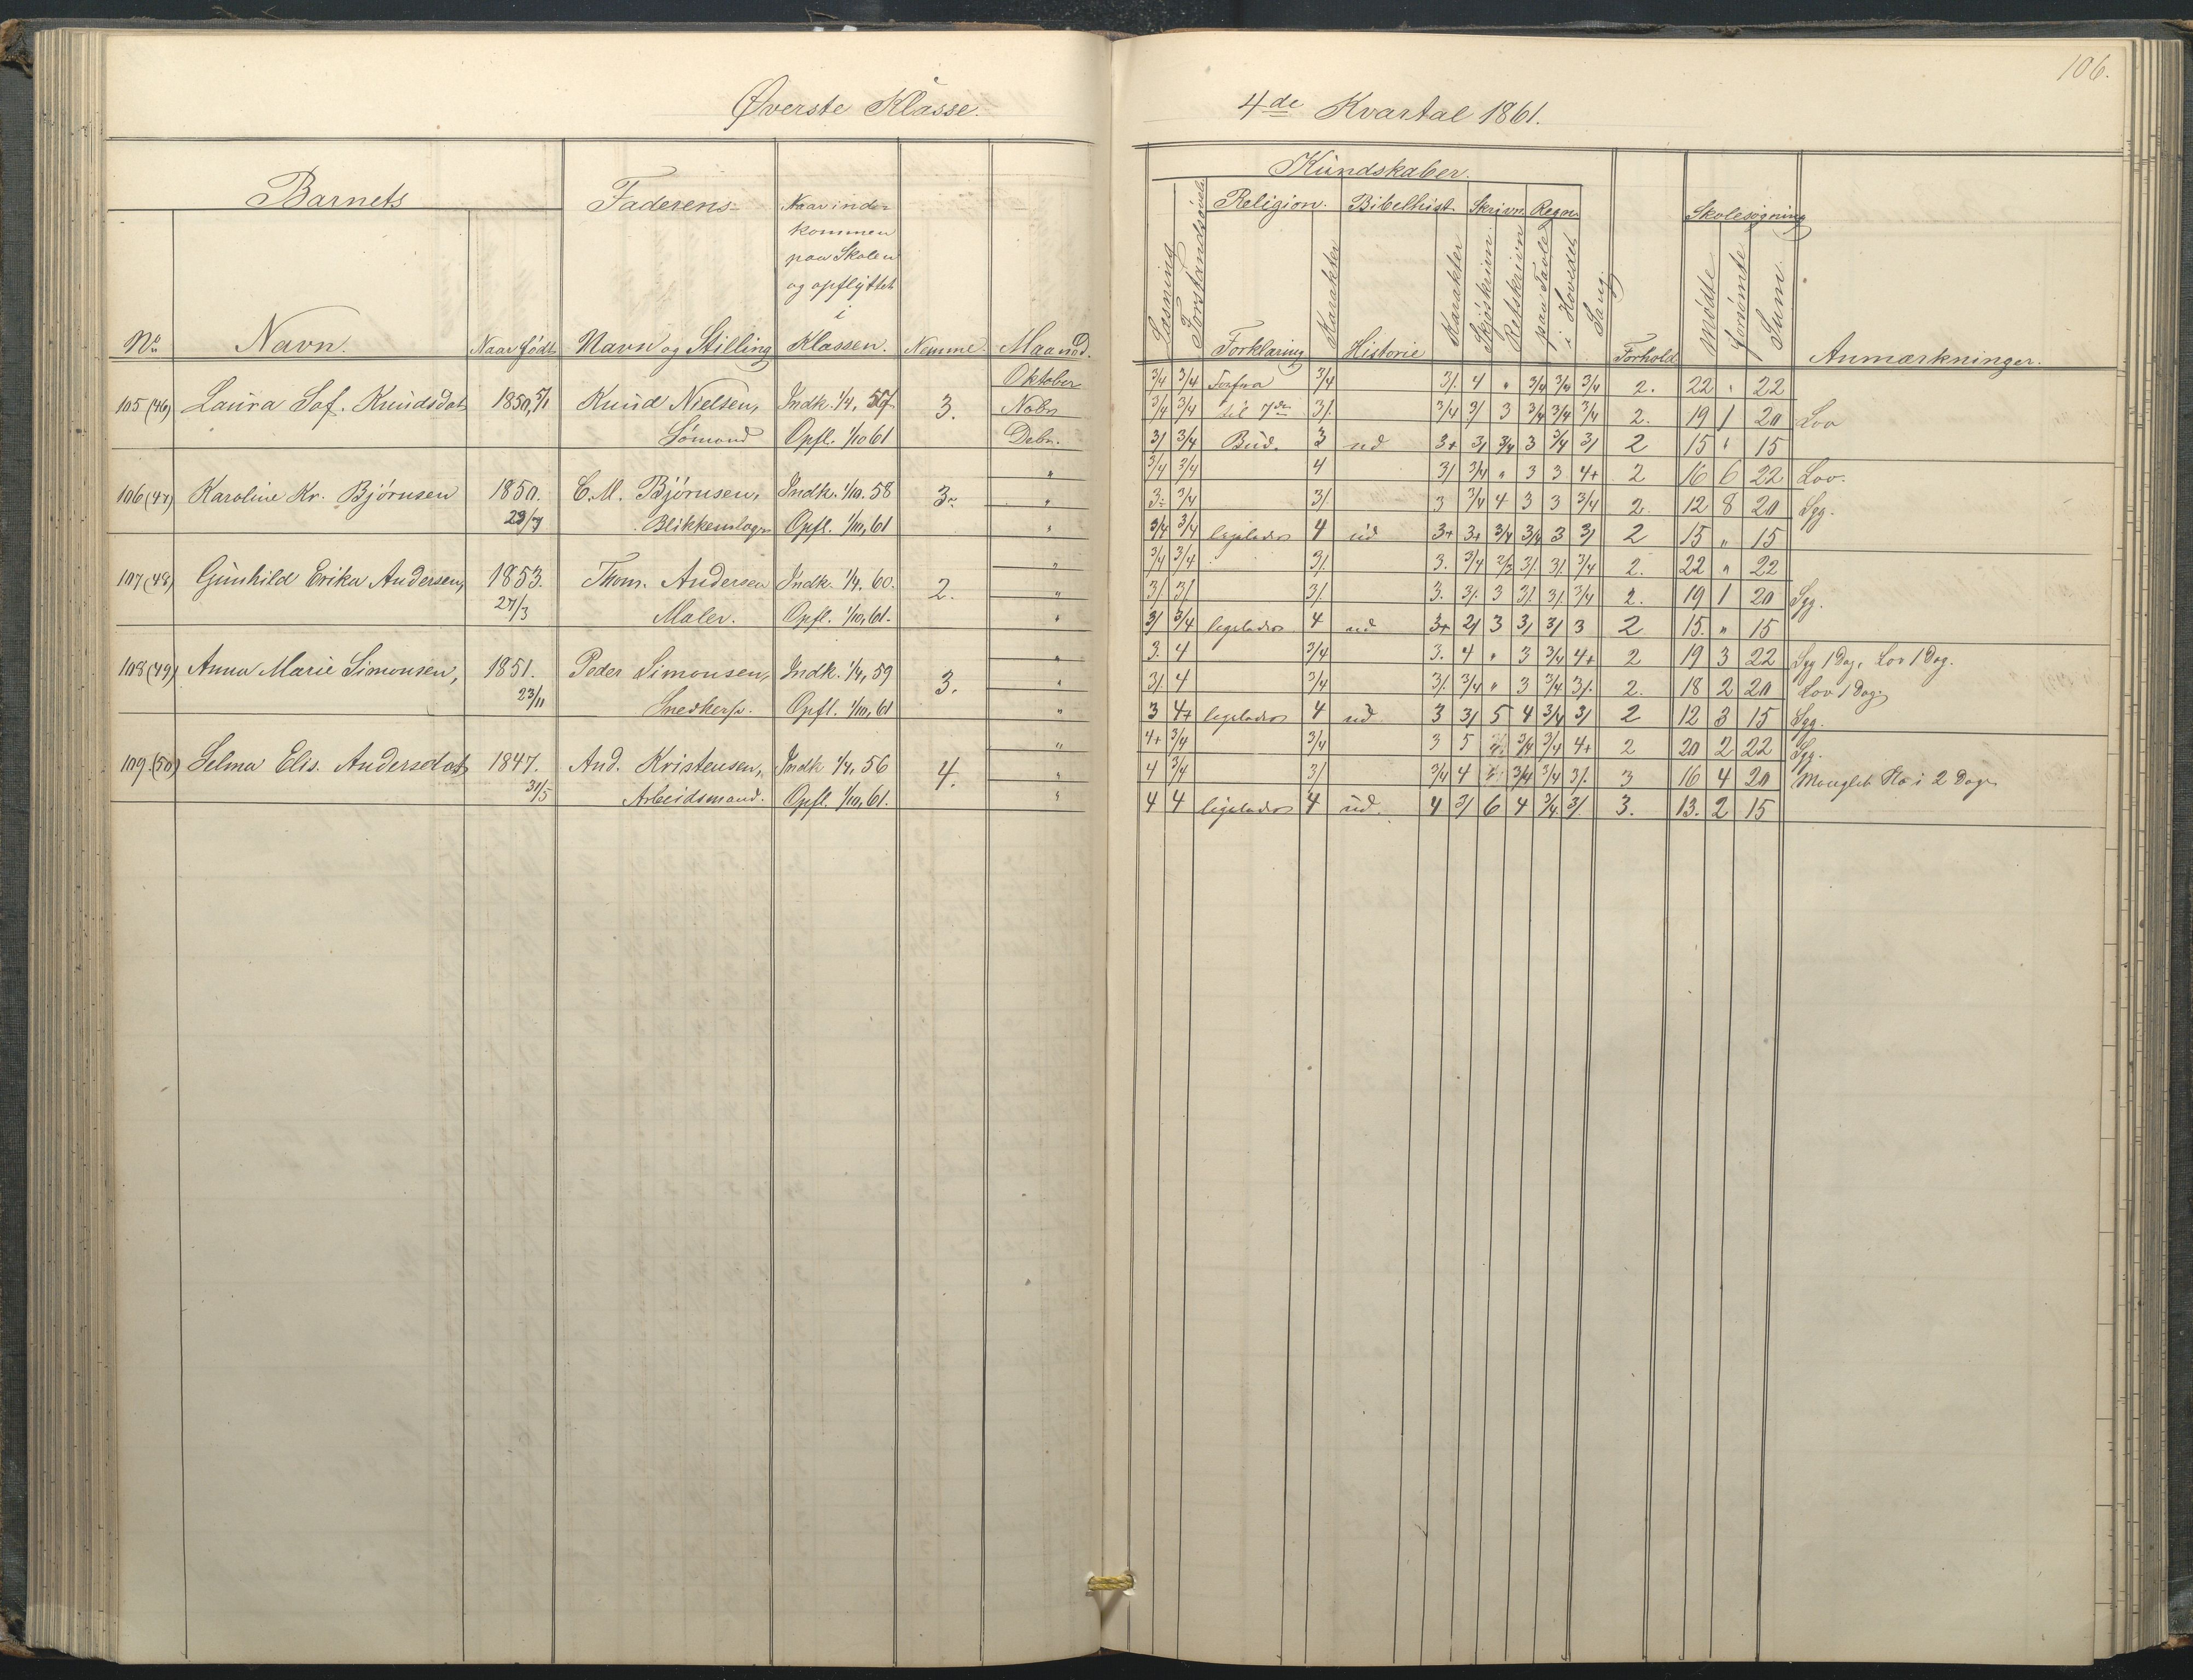 106.
Øverste Klasse.
4de Kvartal 1861.
Barnets
Faderens
Naar indkommen paa Skolen og opflyttet i Klassen.
No
Navn.
Naar født
Navn og Stilling
Nemme.
Maaned.
Kundskaber.
Læsning
Forstandsøvelse
Religion.
Forklaring
Karakter
Bibelhist.
Historie
Karakter
Skrivn.
Skjøskrivn.
Retskrivn
Regn.
paa Tavle
i Hovedet
Sang
Forhold
Skolesøgning
Mødte
Forsømte
Sum.
Anmærkninger.
105 (46) Laura Sof. Knudsdat 1850, 5/1 Knud Nielsen, Indk. 1/4, 57 3. Oktober
Nobr
Sømand Opfl. 1/10 61 Debr.
3/4 3/4 Forfra 3/4 3/. 4 " 3/4 3/4 3/4 2. 22 " 22
3/4 3/4 til 7de 3/. 3/4 3/ 3 3/4 3/4 3/4 2. 19 1 20 Lov
3/ 3/4 Bud. 3 ud 3+ 3/ 3/4 3 3/4 3/ 2 15 " 15
106 (47) Karoline Kr. Bjørnsen 1850. C. M. Bjørnsen, Indk. 1/10. 58 3. "
"
23/7 Blikkenslager Opfl. 1/10, 61 "
3/4 3/4 4 3/ 3/4 " 3 3 4+ 2 16 6 22 Lov.
3. 3/4 3/ 3 3/4 4 3 3 3/4 2. 12 8 20 Syg.
3/4 3/4 ligeledes 4 ud 3+ 3+ 3/4 3/4 3 3/ 2 15 " 15
107 (48) Gunhild Erika Andersen, 1853. Thom. Andersen Indk. 1/4. 60. 2. "
"
27/3 Maler. Opfl. 1/10, 61. "
3/4 3/4 3/. 3. 3/4 2/3 3/. 3/. 3/4 2. 22 " 22
3/. 3/. 3/. 3. 3/. 3 3/. 3/. 3/4 2. 19 1 20 Syg.
3/ 3/4 ligeledes 4 ud 3+ 2/ 3 3/ 3/ 3 2 15. " 15
108 (49) Anna Marie Simonsen, 1851. Peder Simonsen, Indk. 1/4, 59 3. "
"
23/11 Snedkers. Opfl. 1/10, 61 "
3. 4 3/4 3. 4 " 3 3/4 4+ 2 19 3 22 Syg 1 Dag, Lov 1 Dag.
3/. 4 3/4 3/. 3/4 " 3 3/4 3/. 2. 18 2 20 Lov 1 Dag.
3 4+ ligeledes 4 ud 3 3/ 5 4 3/4 3/ 2 12 3 15 Syg.
109. (50) Selma Elis. Andersdat 1847. And. Kristensen, Indk 1/4, 56 4. "
"
31/5 Arbeidsmand. Opfl. 1/10, 61. "
4+ 3/4 3/4 3 5 3/4 3/4 4+ 2 20 2 22 Syg.
4 3/4 3/ 3/4 4 3/4 3/4 3/. 3 16 4 20 Manglet Sko i 2 Dage
4 4 ligeledes 4 ud. 4 3/ 6 4 3/4 3/. 3. 13. 2 15